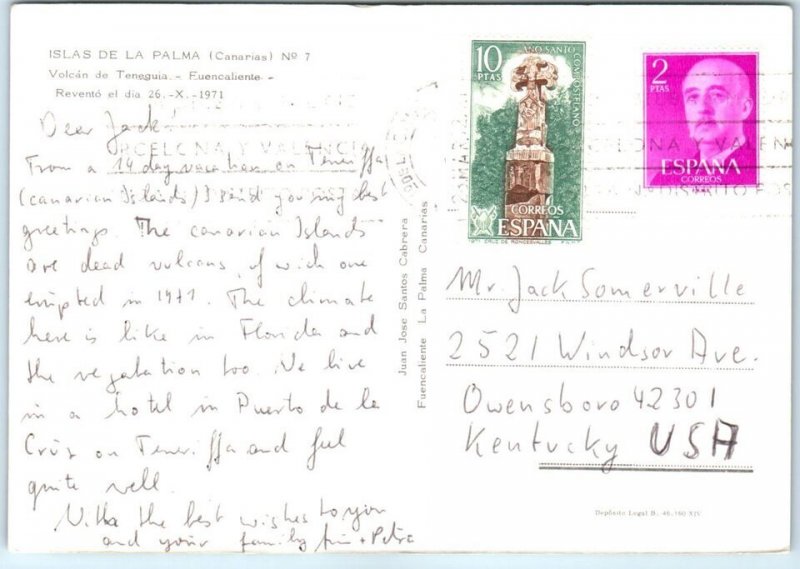 ISLAS DE LA PALMA (Canarias) Nº 7
Volcán de Teneguia. - Fuencaliente -
Reventó el día 26.-X.-1971
Dear Jack!
From a 14 day vacation on Teneriffa
(canarian Islands) I send you my best
greetings. The canarian Islands
are dead vulcans, of wich one
erupted in 1971. The climate
here is like in Florida and
the vegatation too. We live
in a hotel in Puerto de la
Crus on Teneriffa and feel
quite well.
With the best wishes to you
and your family + Petra
Juan Jose Santos Cabrera
Fuencaliente La Palma Canarias
10
PTAS
AÑO SANTO COMPOSTELANO
CORREOS
ESPAÑA
1971 CRUZ DE RONCESVALLES
2
PTAS
ESPAÑA
CORREOS
BARCELONA Y VALENCIA
Mr. Jack Somerville
2521 Windsor Ave.
Owensboro 42301
Kentucky USA
Depósito Legal B. 46.160 XIV